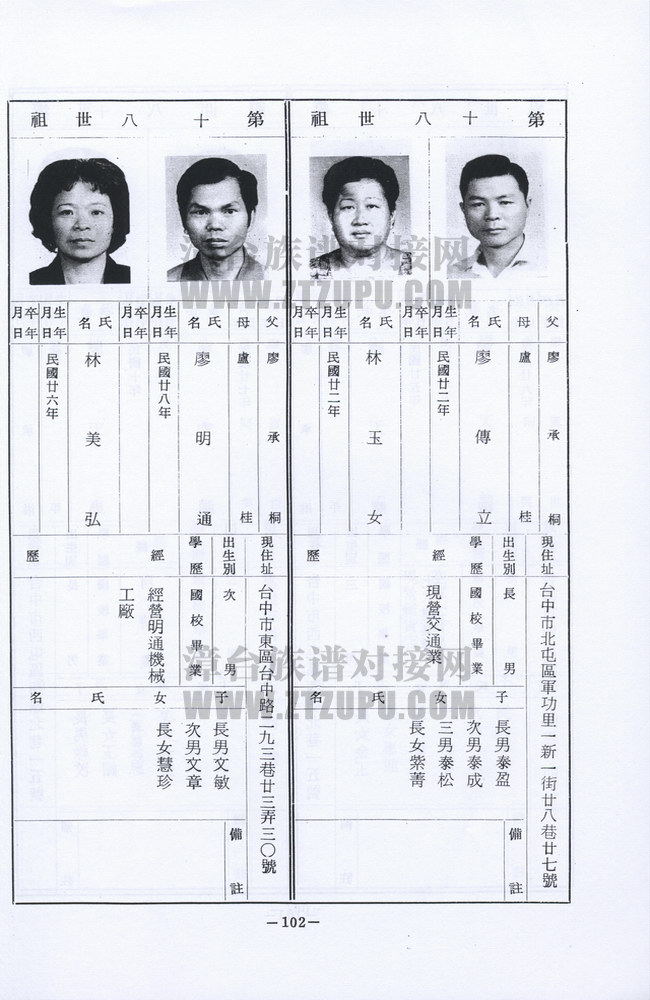 第十八世祖
父 廖承桐
母 盧桂
氏名 廖傳立
生年月日 民國廿二年
卒年月日
氏名 林玉女
生年月日 民國廿二年
卒年月日
現住址 台中市北屯區軍功里一新一街廿八巷廿七號
出生別 長男
學歷 國校畢業
經歷 現營交通業
子女氏名
長男泰盈
次男泰成
三男泰松
長女紫菁
備註
第十八世祖
父 廖承桐
母 盧桂
氏名 廖明通
生年月日 民國廿八年
卒年月日
氏名 林美弘
生年月日 民國廿六年
卒年月日
現住址 台中市東區台中路二九三巷廿三弄三〇號
出生別 次男
學歷 國校畢業
經歷 經營明通機械
工廠
子女氏名
長男文敏
次男文章
長女慧珍
備註
漳台族谱对接网
WWW.ZTZUPU.COM
漳台族谱对接网
WWW.ZTZUPU.COM
—102—